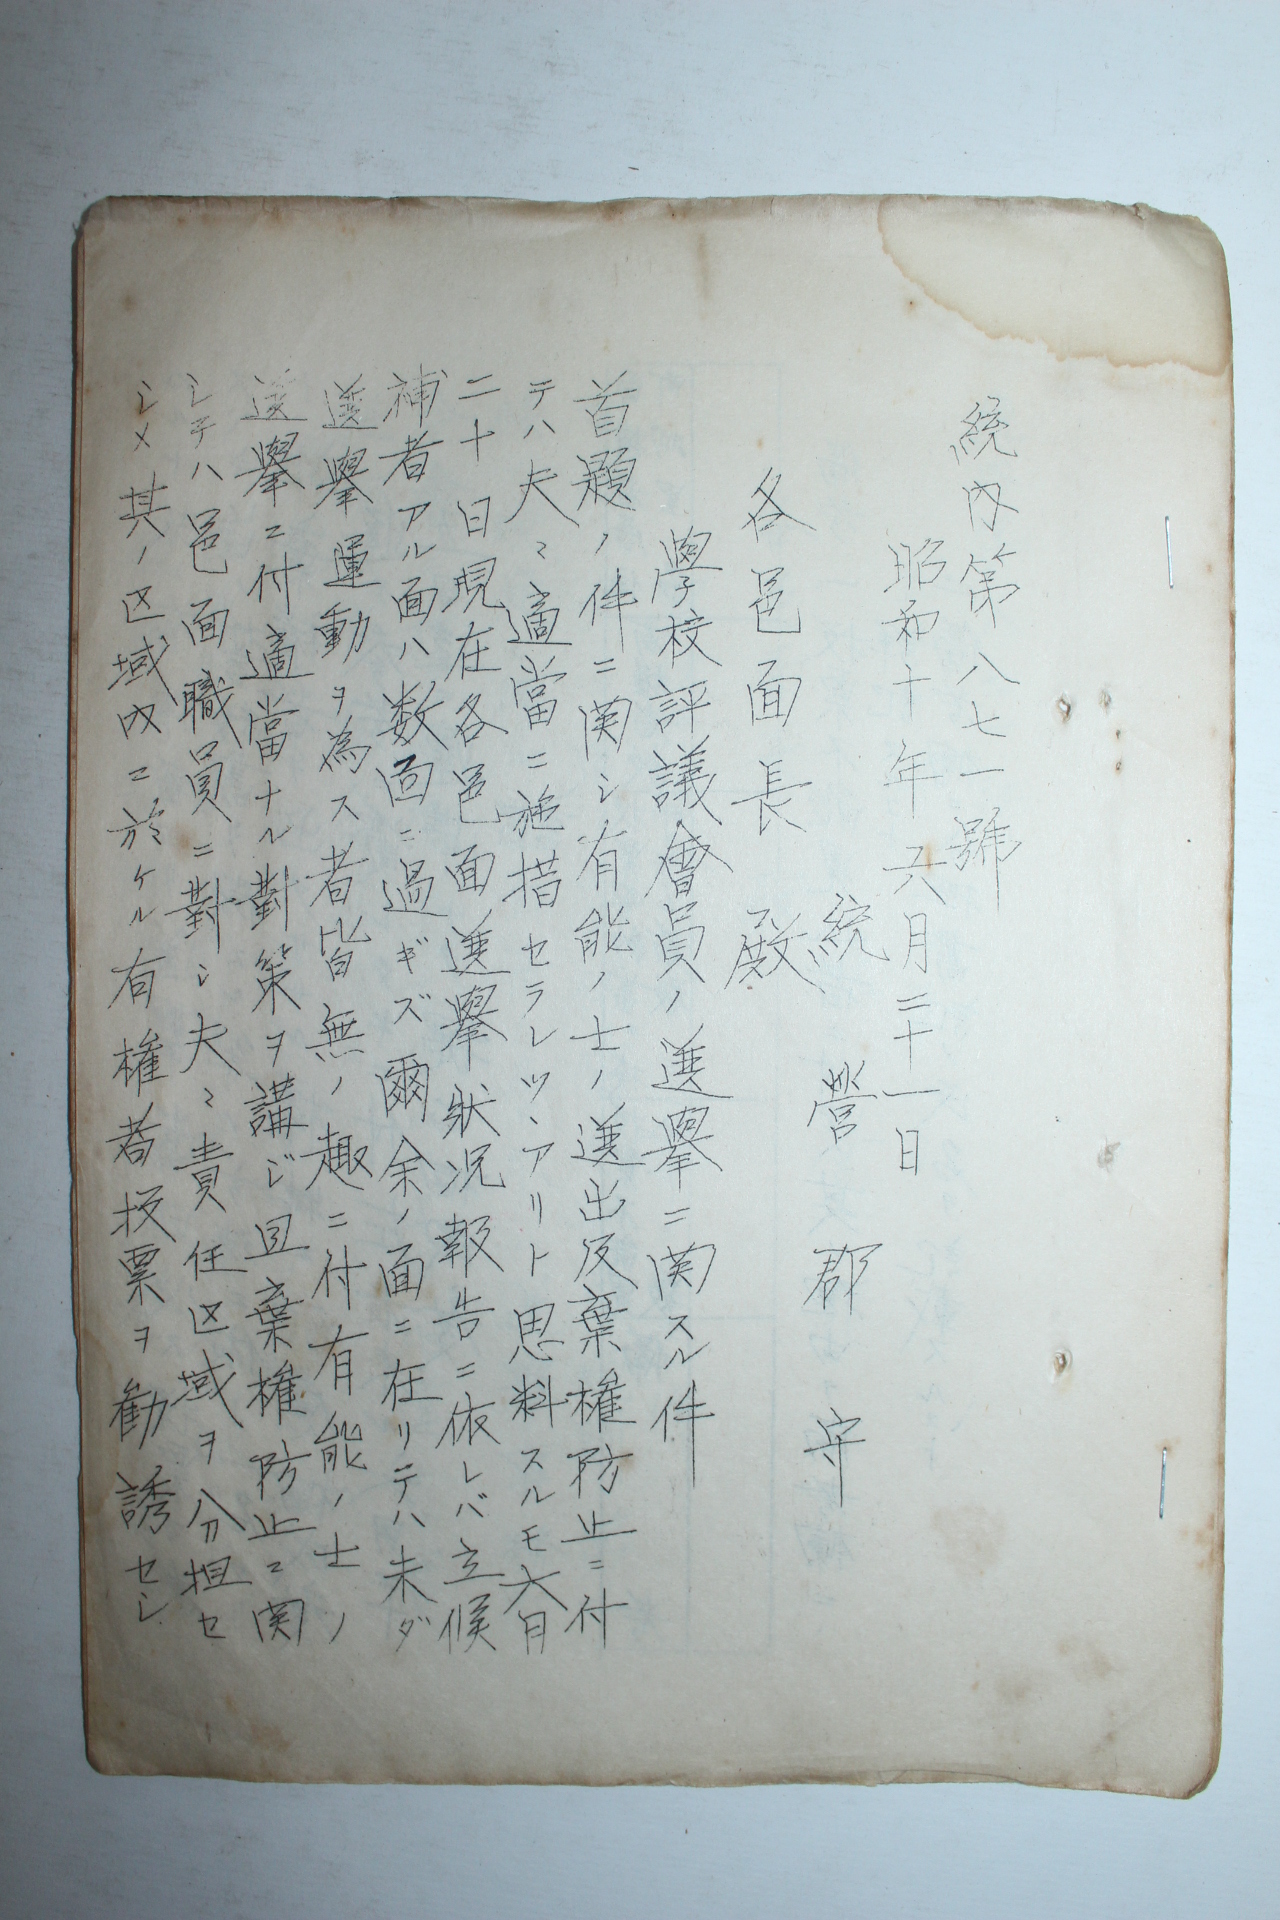 統內第八七一號
昭和十年六月二十一日
統營郡守
各邑面長殿
學校評議會員ノ選擧ニ関スル件
首題ノ件ニ関シ有能ノ士ノ選出反棄権防止ニ付
テハ夫〻適當ニ施措セラレツヽアリト思料スルモ六日
二十日現在各邑面選擧狀況報告ニ依レバ立候
補者アル面ハ数面ニ過ギズ爾余ノ面ニ在リテハ未ダ
選擧運動ヲ為ス者皆無ノ趣ニ付有能ノ士ノ
選擧ニ付適當ナル對策ヲ講ジ且棄権防止ニ関
シテハ邑面職員ニ對シ夫〻責任区域ヲ分担セ
シメ其ノ区域内ニ於ケル有権者投票ヲ勧誘セシ